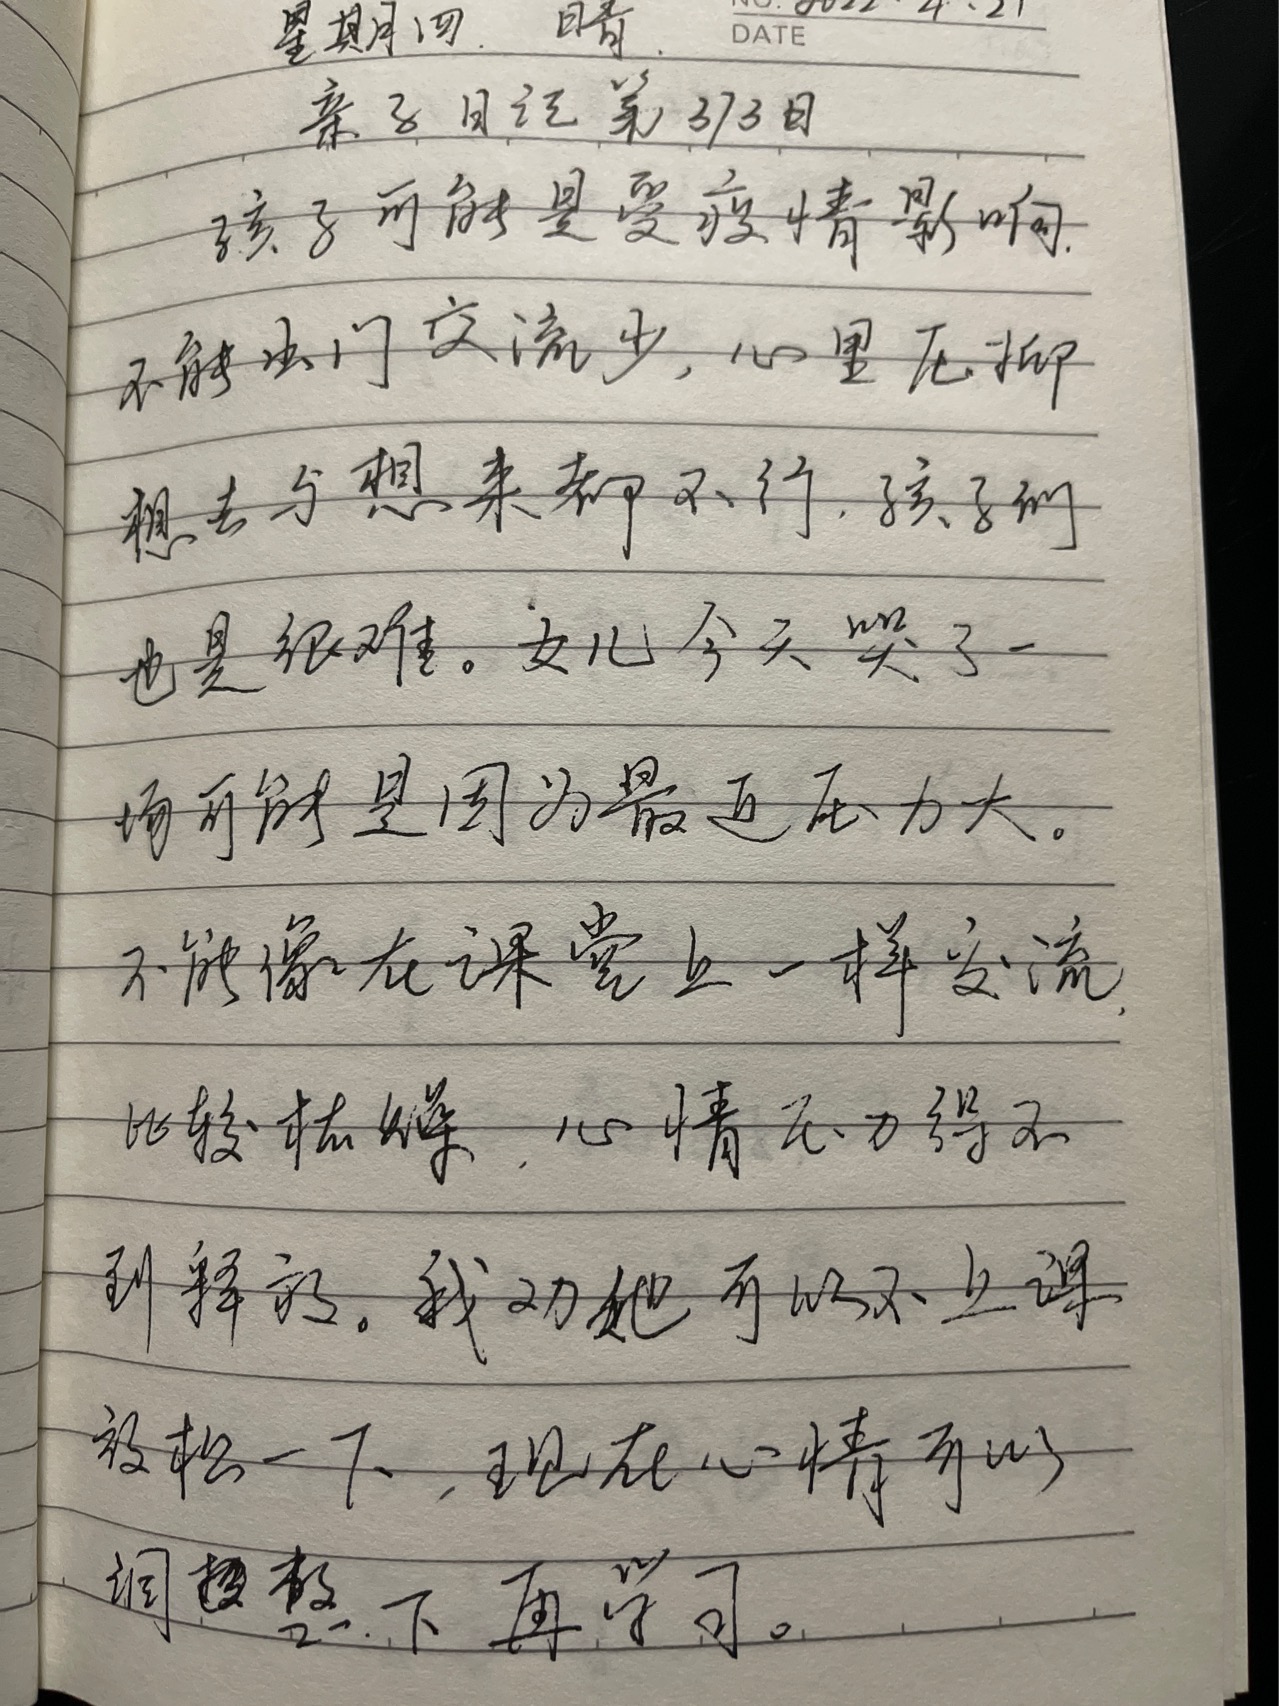 NO. 2022.4.21
星期四. 晴.
DATE
亲子日记第373日
孩子可能是受疫情影响.
不能出门交流少,心里压抑
想去与想来都不行.孩子们
也是很难。女儿今天哭了一
场可能是因为最近压力大。
不能像在课堂上一样交流,
比较枯燥,心情压力得不
到释放。我劝她可以不上课
放松一下,现在心情可以
调整一下再学习。